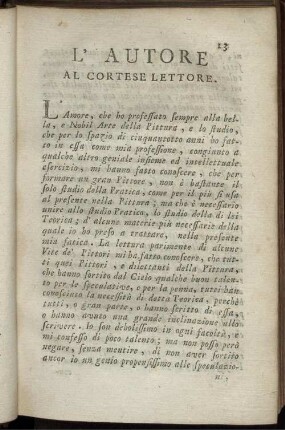 13
L' AUTORE
AL CORTESE LETTORE.
L'Amore, che ho professato sempre alla bel-
la, e Nobil Arte della Pittura, e lo studio,
che per lo spazio di cinquantotto anni ho fat-
to in essa come mia professione, congiunto a
qualche altro geniale insieme ed intellettuale
esercizio, mi hanno fatto conoscere, che per
formare un gran Pittore, non è bastante il
solo studio della Pratica, come per il più si usa
al presente nella Pittura; ma che è necessario
unire allo studio Pratico, lo studio della di lei
Teorica; d' alcune materie più necessarie della
quale io ho preso a trattare, nella presente
mia fatica. La lettura parimente di alcune
Vite de' Pittori mi ha fatto conoscere, che tut-
ti quei Pittori, e dilettanti della Pittura,
che hanno sortito dal Cielo qualche buon talen-
to per le speculative, e per la penna, tutti han
conosciuto la necessità di detta Teorica, perchè
tutti, o gran parte, o hanno scritto di essa,
o hanno avuto una grande inclinazione allo
scrivere. Io son debolissimo in ogni facoltà, e
mi confesso di poco talento; ma non posso però
negare, senza mentire, di non aver sortito
ancor io un genio propensissimo alle speculazio-
ni